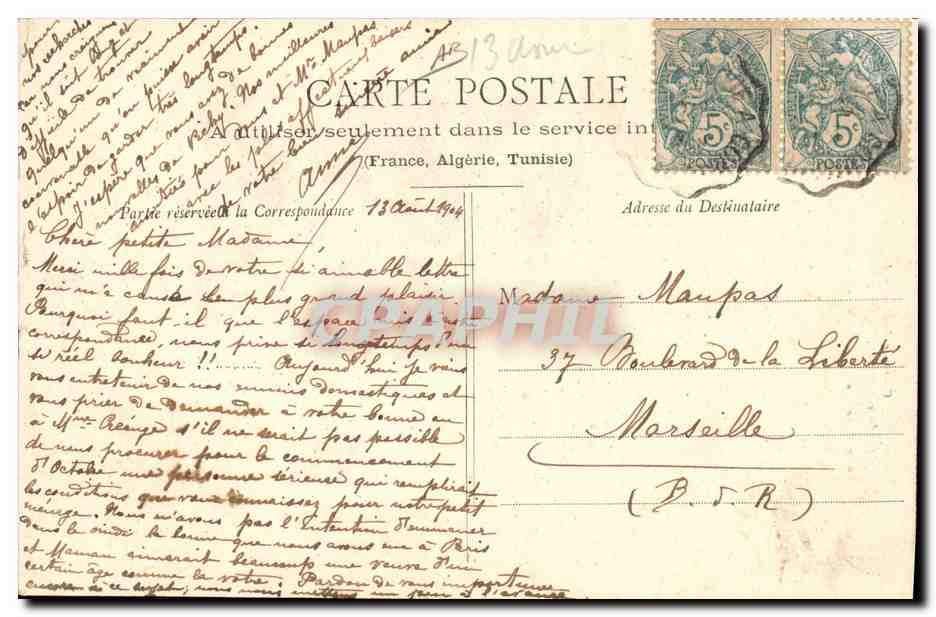 CARTE POSTALE
A utiliser seulement dans le service int
(France, Algérie, Tunisie)
Partie réservée à la Correspondance
13 Août 1904
Adresse du Destinataire
5c
POSTES
5c
POSTES
CPAPHIL
Madame Maupas
37 Boulevard de la Liberté
Marseille
(B. d. R)
Chère petite Madame,
Merci mille fois de votre si aimable lettre
qui m'a causé bien plus grand plaisir.
Pourquoi faut-il que l'espace
correspondance, nous prive si longtemps d'un
si réel bonheur !! Aujourd'hui je vais
vous entretenir de nos ennuis domestiques et
vous prier de demander à votre bonne ou
à Mme s'il ne serait pas possible
de nous procurer pour le commencement
d'Octobre une personne sérieuse qui remplirait
les conditions que vous connaissez pour notre petit
ménage. Nous n'avons pas l'intention d'emmener
dans le midi la bonne que nous avons eue à Paris
et Maman aimerait beaucoup une veuve d'un
certain âge comme la vôtre. Pardon de vous importuner
encore à ce sujet, nous nous mettons un peu à l'avance
pour
nos recherches
car nous craignons
qu'il soit long et
difficile de trouver
quelqu'un de vraiment
convenable qu'on puisse avoir
l'espoir de garder très longtemps.
J'espère que vous avez de bonnes
nouvelles de Vichy. Nos meilleures
amitiés pour vous et Mr Maupas
avec les plus affectueux baisers
de votre bien amie
Anna